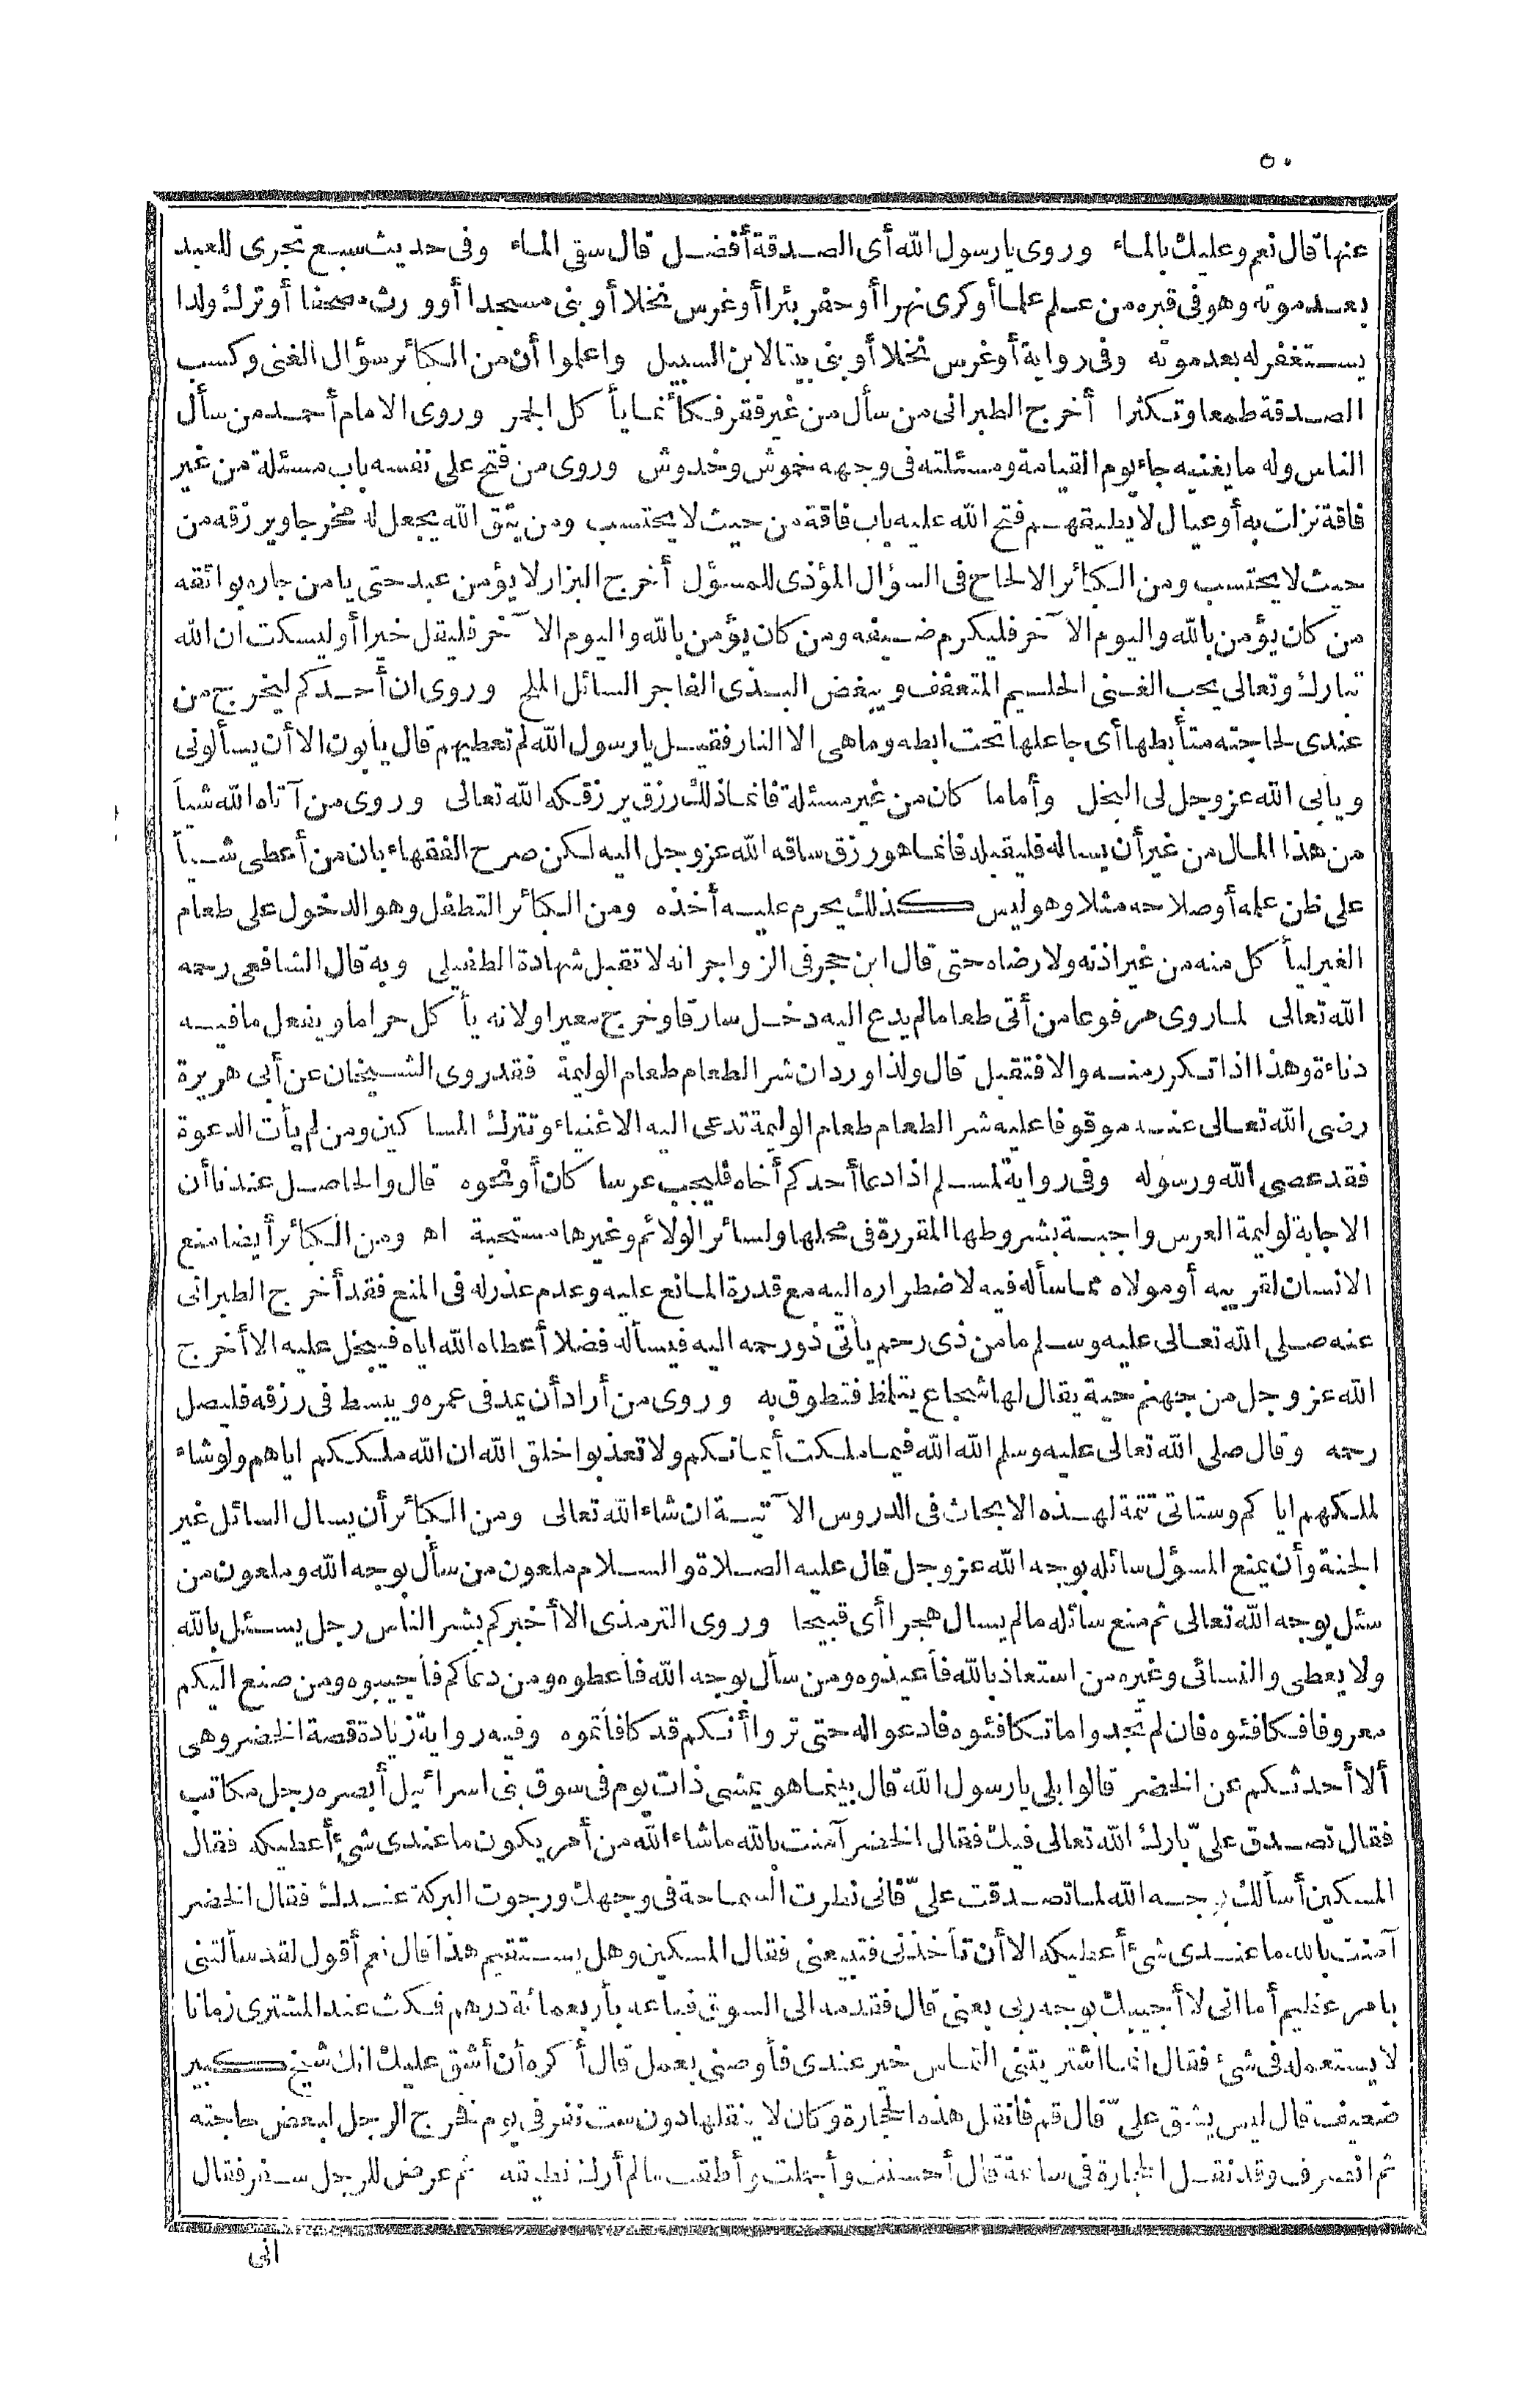 ٥٠
عنها قال نعم وعليك بالماء وروى يارسول الله أى الصدقة أفضل قال سقى الماء وفى حديث سبع تجرى للعبد
بعد موته وهو فى قبره من علم علما أو كرى نهرا أو حفر بئرا أو غرس نخلا أو بنى مسجدا أو ورث مصحفا أو ترك ولدا
يستغفر له بعد موته وفى رواية أو غرس نخلا أو بنى بيتا لابن السبيل واعلموا أن من الكبائر سؤال الغنى وكسب
الصدقة طمعا وتكثرا أخرج الطبرانى من سأل من غير فقر فكأنما يأ كل الجمر وروى الامام أحمد من سأل
الناس وله ما يغنيه جاء يوم القيامة ومسئلته فى وجهه خموش وخدوش وروى من فتح على نفسه باب مسئلة من غير
فاقة نزلت به أو عيال لا يطيقهم فتح الله عليه باب فاقة من حيث لا يحتسب ومن يتق الله يجعل له مخرجا ويرزقه من
حيث لا يحتسب ومن الكبائر الالحاح فى السؤال المؤذى للمسؤل أخرج البزار لا يؤمن عبد حتى يامن جاره بوائقه
من كان يؤمن بالله واليوم الآخر فليكرم ضيفه ومن كان يؤمن بالله واليوم الآخر فليقل خيرا أو ليسكت ان الله
تبارك وتعالى يحب الغنى الحليم المتعفف ويبغض البذى الفاجر السائل الملح وروى ان أحدكم ليخرج من
عندى لحاجته متأبطها أى جاعلها تحت ابطه وما هى الا النار فقيل يارسول الله لم تعطيهم قال يأبون الا أن يسألونى
ويأبى الله عز وجل لى البخل وأما ما كان من غير مسئلة فانما ذلك رزق يرزقكه الله تعالى وروى من آتاه الله شيأ
من هذا المال من غير أن يساله فليقبله فانما هو رزق ساقه الله عز وجل اليه لكن صرح الفقهاء بان من أعطى شيأ
على ظن علمه أو صلاحه مثلا وهو ليس كذلك يحرم عليه أخذه ومن الكبائر التطفل وهو الدخول على طعام
الغير ليأ كل منه من غير اذنه ولا رضاه حتى قال ابن حجر فى الزواجر انه لا تقبل شهادة الطفيلى وبه قال الشافعى رحمه
الله تعالى لما روى مرفوعا من أتى طعاما لم يدع اليه دخل سارقا وخرج مغيرا ولانه يأ كل حراما ويفعل ما فيه
دناءة وهذا اذا تكرر منه والا فتقبل قال ولذا ورد ان شر الطعام طعام الوليمة فقد روى الشيخان عن أبى هريرة
رضى الله تعالى عنه موقوفا عليه شر الطعام طعام الوليمة تدعى اليه الاغنياء وتترك المساكين ومن لم يأت الدعوة
فقد عصى الله ورسوله وفى رواية لمسلم اذا دعا أحدكم أخاه فليجب عرسا كان أو نحوه قال والحاصل عندنا أن
الاجابة لوليمة العرس واجبة بشروطها المقررة فى محلها ولسائر الولائم وغيرها مستحبة اه ومن الكبائر أيضا منع
الانسان لقريبه أو مولاه مما سأله فيه لاضطراره اليه مع قدرة المانع عليه وعدم عذر له فى المنع فقد أخرج الطبرانى
عنه صلى الله تعالى عليه وسلم ما من ذى رحم يأتى ذو رحمه اليه فيسأله فضلا أعطاه الله اياه فيبخل عليه الا أخرج
الله عز وجل من جهنم حية يقال لها شجاع يتلظ فتطوق به وروى من أراد أن يمد فى عمره ويبسط فى رزقه فليصل
رحمه وقال صلى الله تعالى عليه وسلم الله الله فيما ملكت أيمانكم ولا تعذبوا خلق الله ان الله ملككم اياهم ولو شاء
لملكهم ايا كم وستاتى تتمة لهذه الابحاث فى الدروس الآتية ان شاء الله تعالى ومن الكبائر أن يسال السائل غير
الجنة وأن يمنع المسؤل سائله بوجه الله عز وجل قال عليه الصلاة والسلام ملعون من سأل بوجه الله وملعون من
سئل بوجه الله تعالى ثم منع سائله ما لم يسال هجرا أى قبيحا وروى الترمذى الا أخبركم بشر الناس رجل يسئل بالله
ولا يعطى والنسائى وغيره من استعاذ بالله فأعيذوه ومن سأل بوجه الله فأعطوه ومن دعا كم فأجيبوه ومن صنع اليكم
معروفا فكافئوه فان لم تجدوا ما تكافئوه فادعوا له حتى تروا أنكم قد كافأتموه وفيه رواية زيادة قصة الخضر وهى
ألا أحدثكم عن الخضر قالوا بلى يارسول الله قال بينما هو يمشى ذات يوم فى سوق بنى اسرائيل أبصره رجل مكاتب
فقال تصدق علىّ بارك الله تعالى فيك فقال الخضر آمنت بالله ما شاء الله من أمر يكون ما عندى شئ أعطيكه فقال
المسكين أسألك بوجه الله لما تصدقت علىّ فانى نظرت السماحة فى وجهك ورجوت البركة عندك فقال الخضر
آمنت بالله ما عندى شئ أعطيكه الا أن تأخذنى فتبيعنى فقال المسكين وهل يستقيم هذا قال نعم أقول لقد سألتنى
بامر عظيم أما انى لا أجيبك بوجه ربى بعنى قال فقدمه الى السوق فباعه بأربعمائة درهم فمكث عند المشترى زمانا
لا يستعمله فى شئ فقال انما اشتريتنى التماس خير عندى فأوصنى بعمل قال أ كره أن أشق عليك انك شيخ كبير
ضعيف قال ليس يشق علىّ قال قم فانقل هذه الحجارة وكان لا ينقلها دون ست نفر فى يوم فخرج الرجل لبعض حاجته
ثم انصرف وقد نقل الحجارة فى ساعة قال أحسنت وأجملت وأطقت ما لم أرك تطيقه ثم عرض للرجل سفر فقال
انى